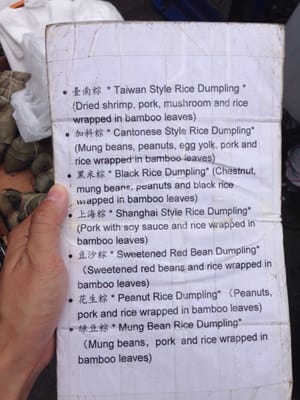 臺南粽 * Taiwan Style Rice Dumpling*
(Dried shrimp, pork, mushroom and rice
wrapped in bamboo leaves)
加料粽 * Cantonese Style Rice Dumpling*
(Mung beans, peanuts, egg yolk, pork and
rice wrapped in bamboo leaves)
黑米粽 * Black Rice Dumpling* (Chestnut,
mung beans, peanuts and black rice
wrapped in bamboo leaves)
上海粽 * Shanghai Style Rice Dumpling*
(Pork with soy sauce and rice wrapped in
bamboo leaves)
豆沙粽 * Sweetened Red Bean Dumpling*
(Sweetened red beans and rice wrapped in
bamboo leaves)
花生粽 * Peanut Rice Dumpling* (Peanuts,
pork and rice wrapped in bamboo leaves)
绿豆粽 * Mung Bean Rice Dumpling*
(Mung beans, pork and rice wrapped in
bamboo leaves)